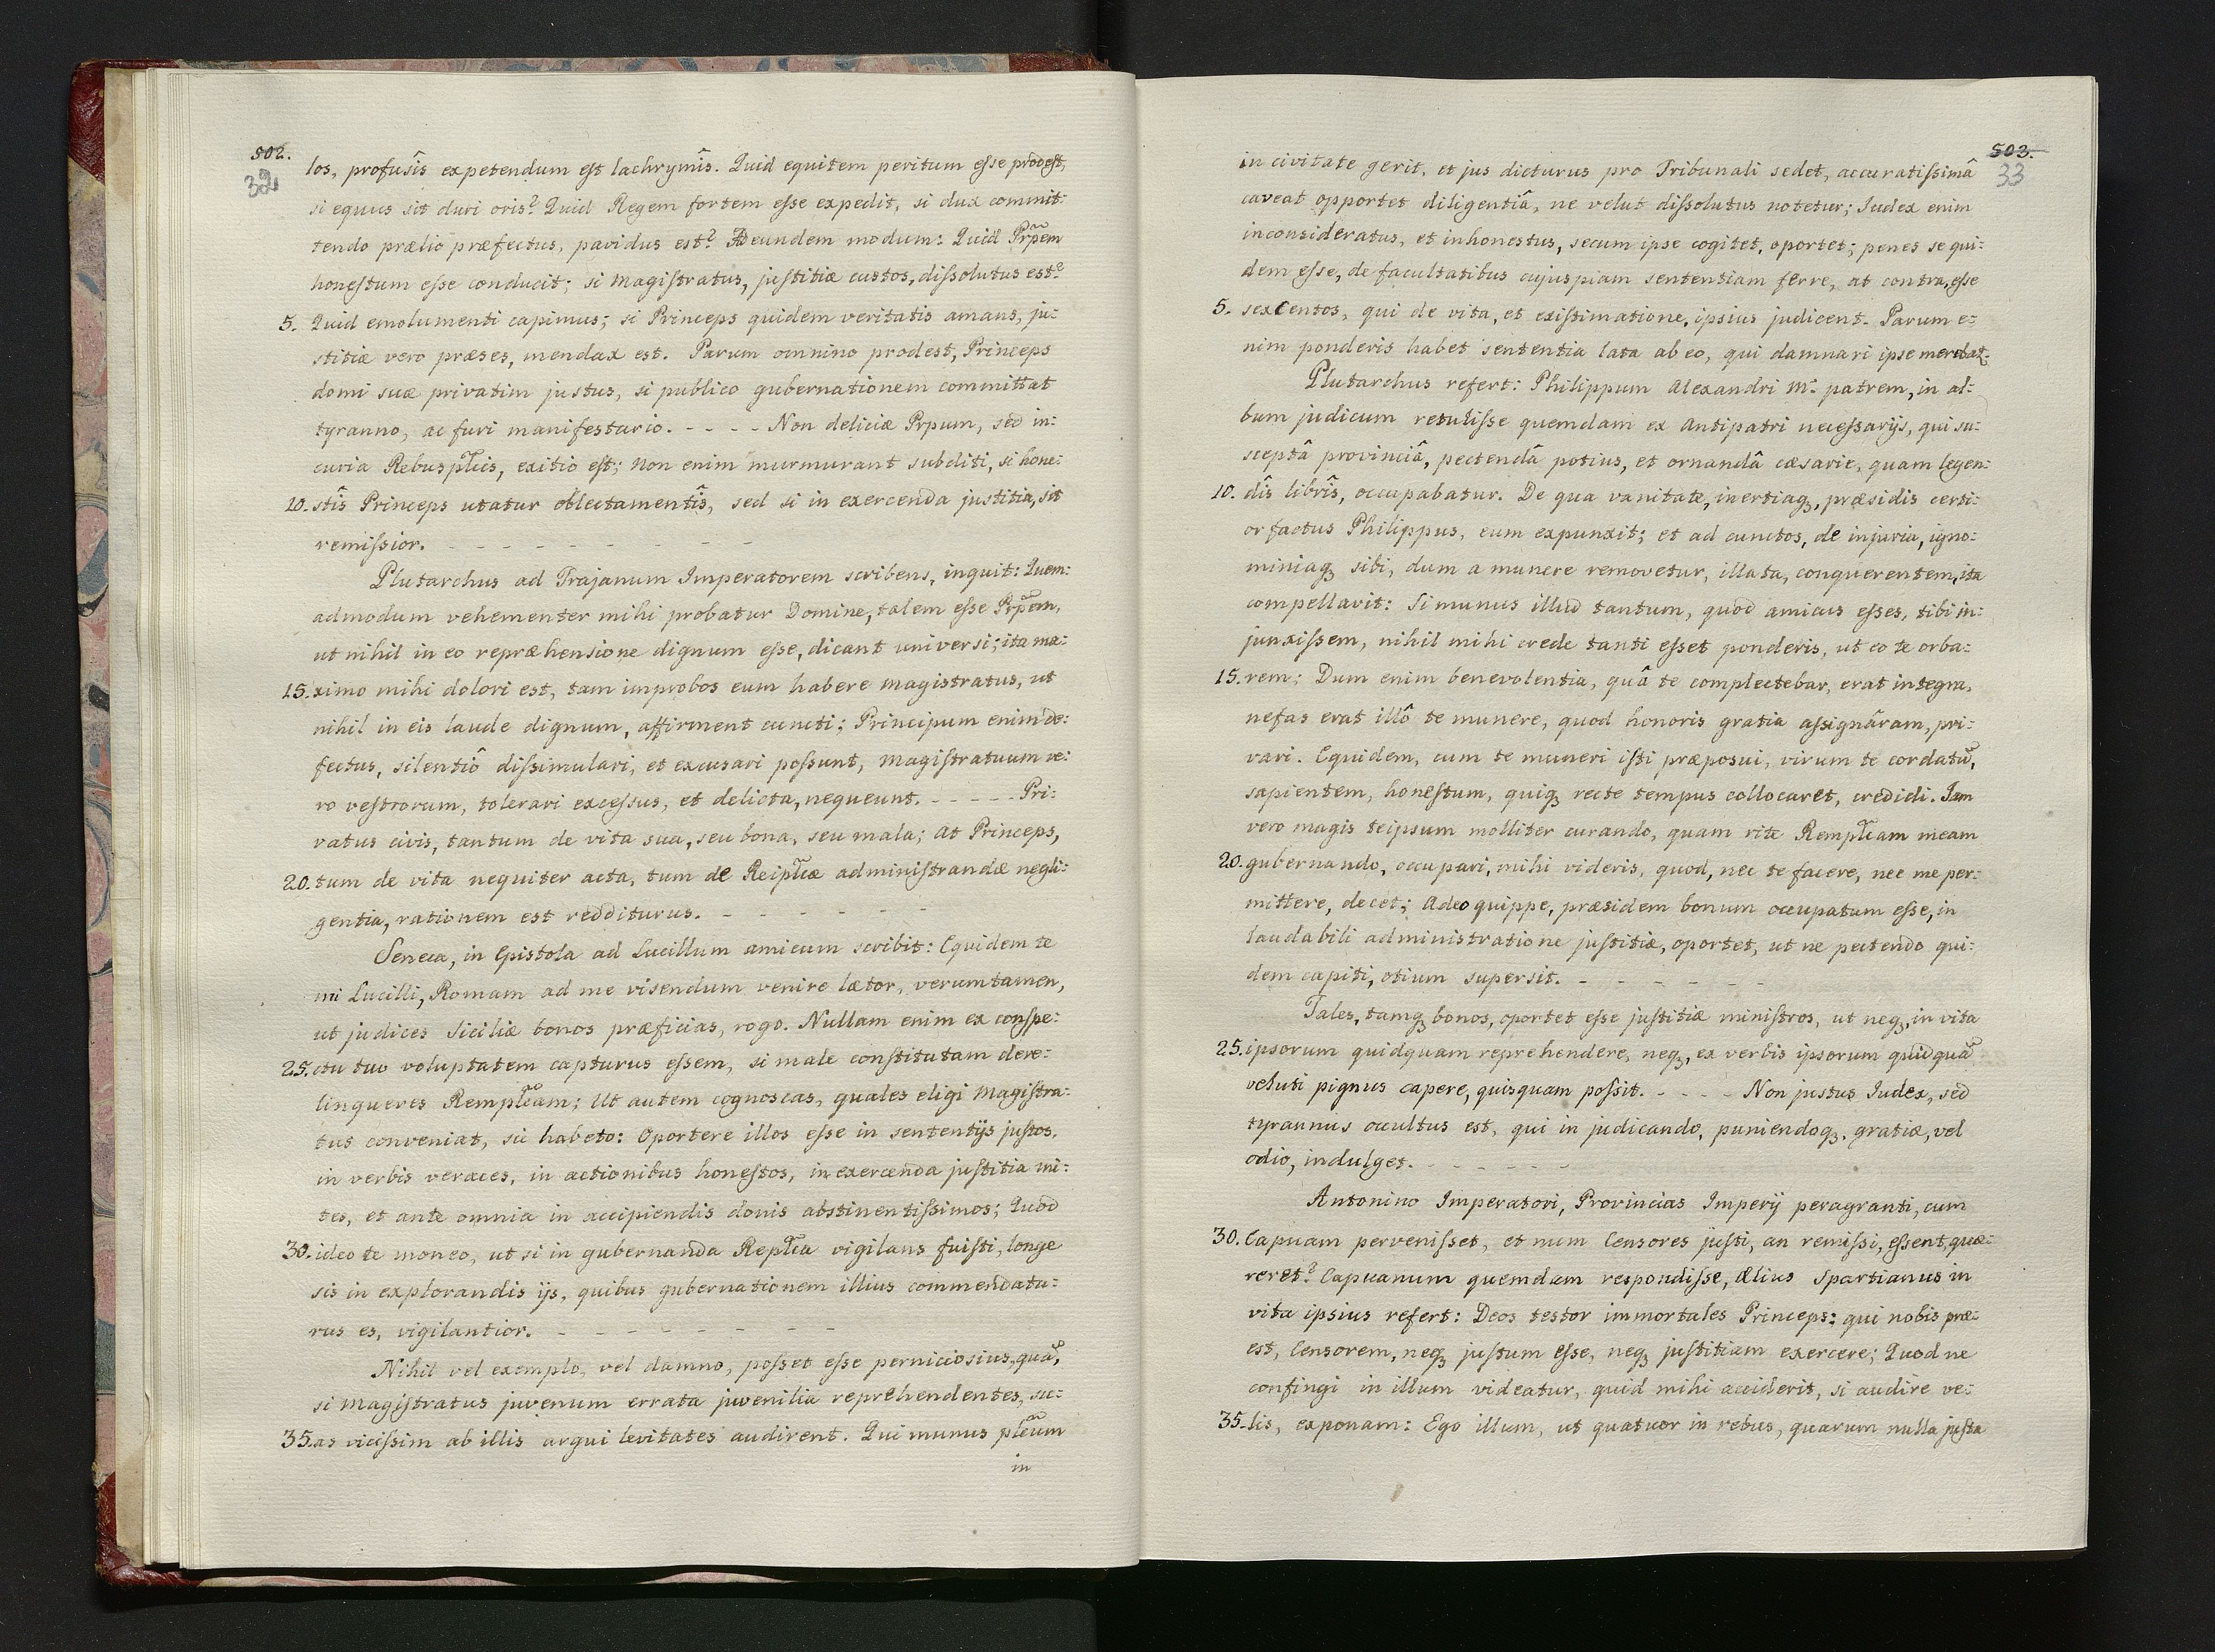 502.
32
los, profusîs expetendum est lachrymîs. Quid equitem peritum esse prodest,
si equus sit duri oris? Quid Regem fortem esse expedit, si dux commit:
tendo prælio præfectus, pavidus est? Ad eundem modum: Quid Prp̃em
honestum esse conducit; si Magistratus, justitiæ custos, dissolutus est?
5. Quid emolumenti capimus; si Princeps quidem veritatis amans, ju:
stitiæ vero præses, mendax est. Parum omnino prodest, Princeps
domi suæ privatim justus, si publico gubernationem committat
tyranno, ac furi manifestario. - - - - Non deliciæ Prpum, sed in:
curia Rebusp̃lcis, exitio est; Non enim murmurant subditi, si hone:
10. stîs Princeps utatur oblectamentîs, sed si in exercenda justitia, sit
remissior. - - - - - - - - -
Plutarchus ad Trajanum Imperatorem scribens, inquit: Quem:
admodum vehementer mihi probatur Domine, talem esse Prp̃em,
ut nihil in eo repræhensione dignum esse, dicant universi; ita ma:
15. ximo mihi dolori est, tam improbos eum habere magistratus, ut
nihil in eis laude dignum, affirment cuncti; Principum enim de:
fectus, silentiô dissimulari, et excusari possunt, Magistratuum ve:
ro vestrorum, tolerari excessus, et delicta, nequeunt. - - - - - Pri:
vatus civis, tantum de vita sua, seu bona, seu mala; at Princeps,
20. tum de vita nequiter acta, tum de Reip̃lcæ administrandæ negli:
gentia, rationem est redditurus. - - - - - -
Seneca, in Epistola ad Lucillum amicum scribit: Equidem te
mi Lucilli, Romam ad me visendum venire lætor, verumtamen,
ut judices Siciliæ bonos præficias, rogo. Nullam enim ex conspe:
25. ctu tuo voluptatem capturus essem, si male constitutam dere:
linqueres Remp̃lcam; Ut autem cognoscas, quales eligi Magistra:
tus conveniat, sic habeto: Oportere illos esse in sententijs justos,
in verbis veraces, in actionibus honestos, in exercenda justitia mi:
tes, et ante omnia in accipiendis donis abstinentissimos; Quod
30. ideo te moneo, ut si in gubernanda Rep̃lca vigilans fuisti, longe
sis in explorandis ijs, quibus gubernationem illius commendatu:
rus es, vigilantior. - - - - - - - -
Nihil vel exemplo, vel damno, posset esse perniciosius, quã,
si Magistratus juvenum errata juvenilia reprehendentes, su:
35. as vicissim ab illis argui levitates audirent. Qui munus plc̃um
in
503.
33
in civitate gerit, et jus dicturus pro Tribunali sedet, accuratissimâ
caveat opportet diligentiâ, ne velut dissolutus notetur; Iudex enim
inconsideratus, et inhonestus, secum ipse cogitet, oportet; penes se qui:
dem esse, de facultatibus cujuspiam sententiam ferre, at contra, esse
5. sexcentos, qui de vita, et existimatione, ipsius judicent. Parum e:
nim ponderis habet sententia lata ab eo, qui damnari ipse merebat:
Plutarchus refert: Philippum Alexandri M: patrem, in al:
bum judicum retulisse quemdam ex Antipatri necessarijs, qui su:
sceptâ provinciâ, pectendâ potius, et ornandâ cæsarie, quam legen:
10. dîs librîs, occupabatur. De qua vanitate, inertiaqȝ, præsidis certi:
or factus Philippus, eum expunxit; et ad cunctos, de injuria, igno:
miniaqȝ sibi, dum a munere removetur, illata, conquerentem, ita
compellavit: Si munus illud tantum, quod amicus esses, tibi in:
junxissem, nihil mihi crede tanti esset ponderis, ut eo te orba:
15. rem; Dum enim benevolentia, quâ te complectebar, erat integra,
nefas erat illô te munere, quod honoris gratia assignâram, pri:
vari. Equidem, cum te muneri isti præposui, virum te cordatũ,
sapientem, honestum, quiqȝ recte tempus collocaret, credidi. Jam
vero magis teipsum molliter curando, quam rite Remp̃lcam meam
20. gubernando, occupari, mihi videris, quod, nec te facere, nec me per:
mittere, decet; Adeo quippe, præsidem bonum occupatum esse, in
laudabili administratione justitiæ, oportet, ut ne pectendo qui:
dem capiti, otium supersit. - - - - - -
Tales, tamqȝ bonos, oportet esse justitiæ ministros, ut neqȝ, in vita
25. ipsorum quidquam reprehendere, neqȝ, ex verbis ipsorum quidquã
veluti pignus capere, quisquam possit. - - - - Non justus Iudex, sed
tyrannus occultus est, qui in judicando, puniendoqȝ, gratiæ, vel
odio, indulget. - - - - - -
Antonino Imperatori, Provincias Imperij peragranti, cum
30. Capuam pervenisset, et num Censores justi, an remissi, essent, quæ:
reret? Capuanum quemdam respondisse, Ælius Spartianus in
vita ipsius refert: Deos testor immortales Princeps: qui nobis præ:
est, Censorem, neqȝ justum esse, neqȝ justitiam exercere; Quod ne
confingi in illum videatur, quid mihi acciderit, si audire ve:
35. lis, exponam: Ego illum, ut quatuor in rebus, quarum nulla justa